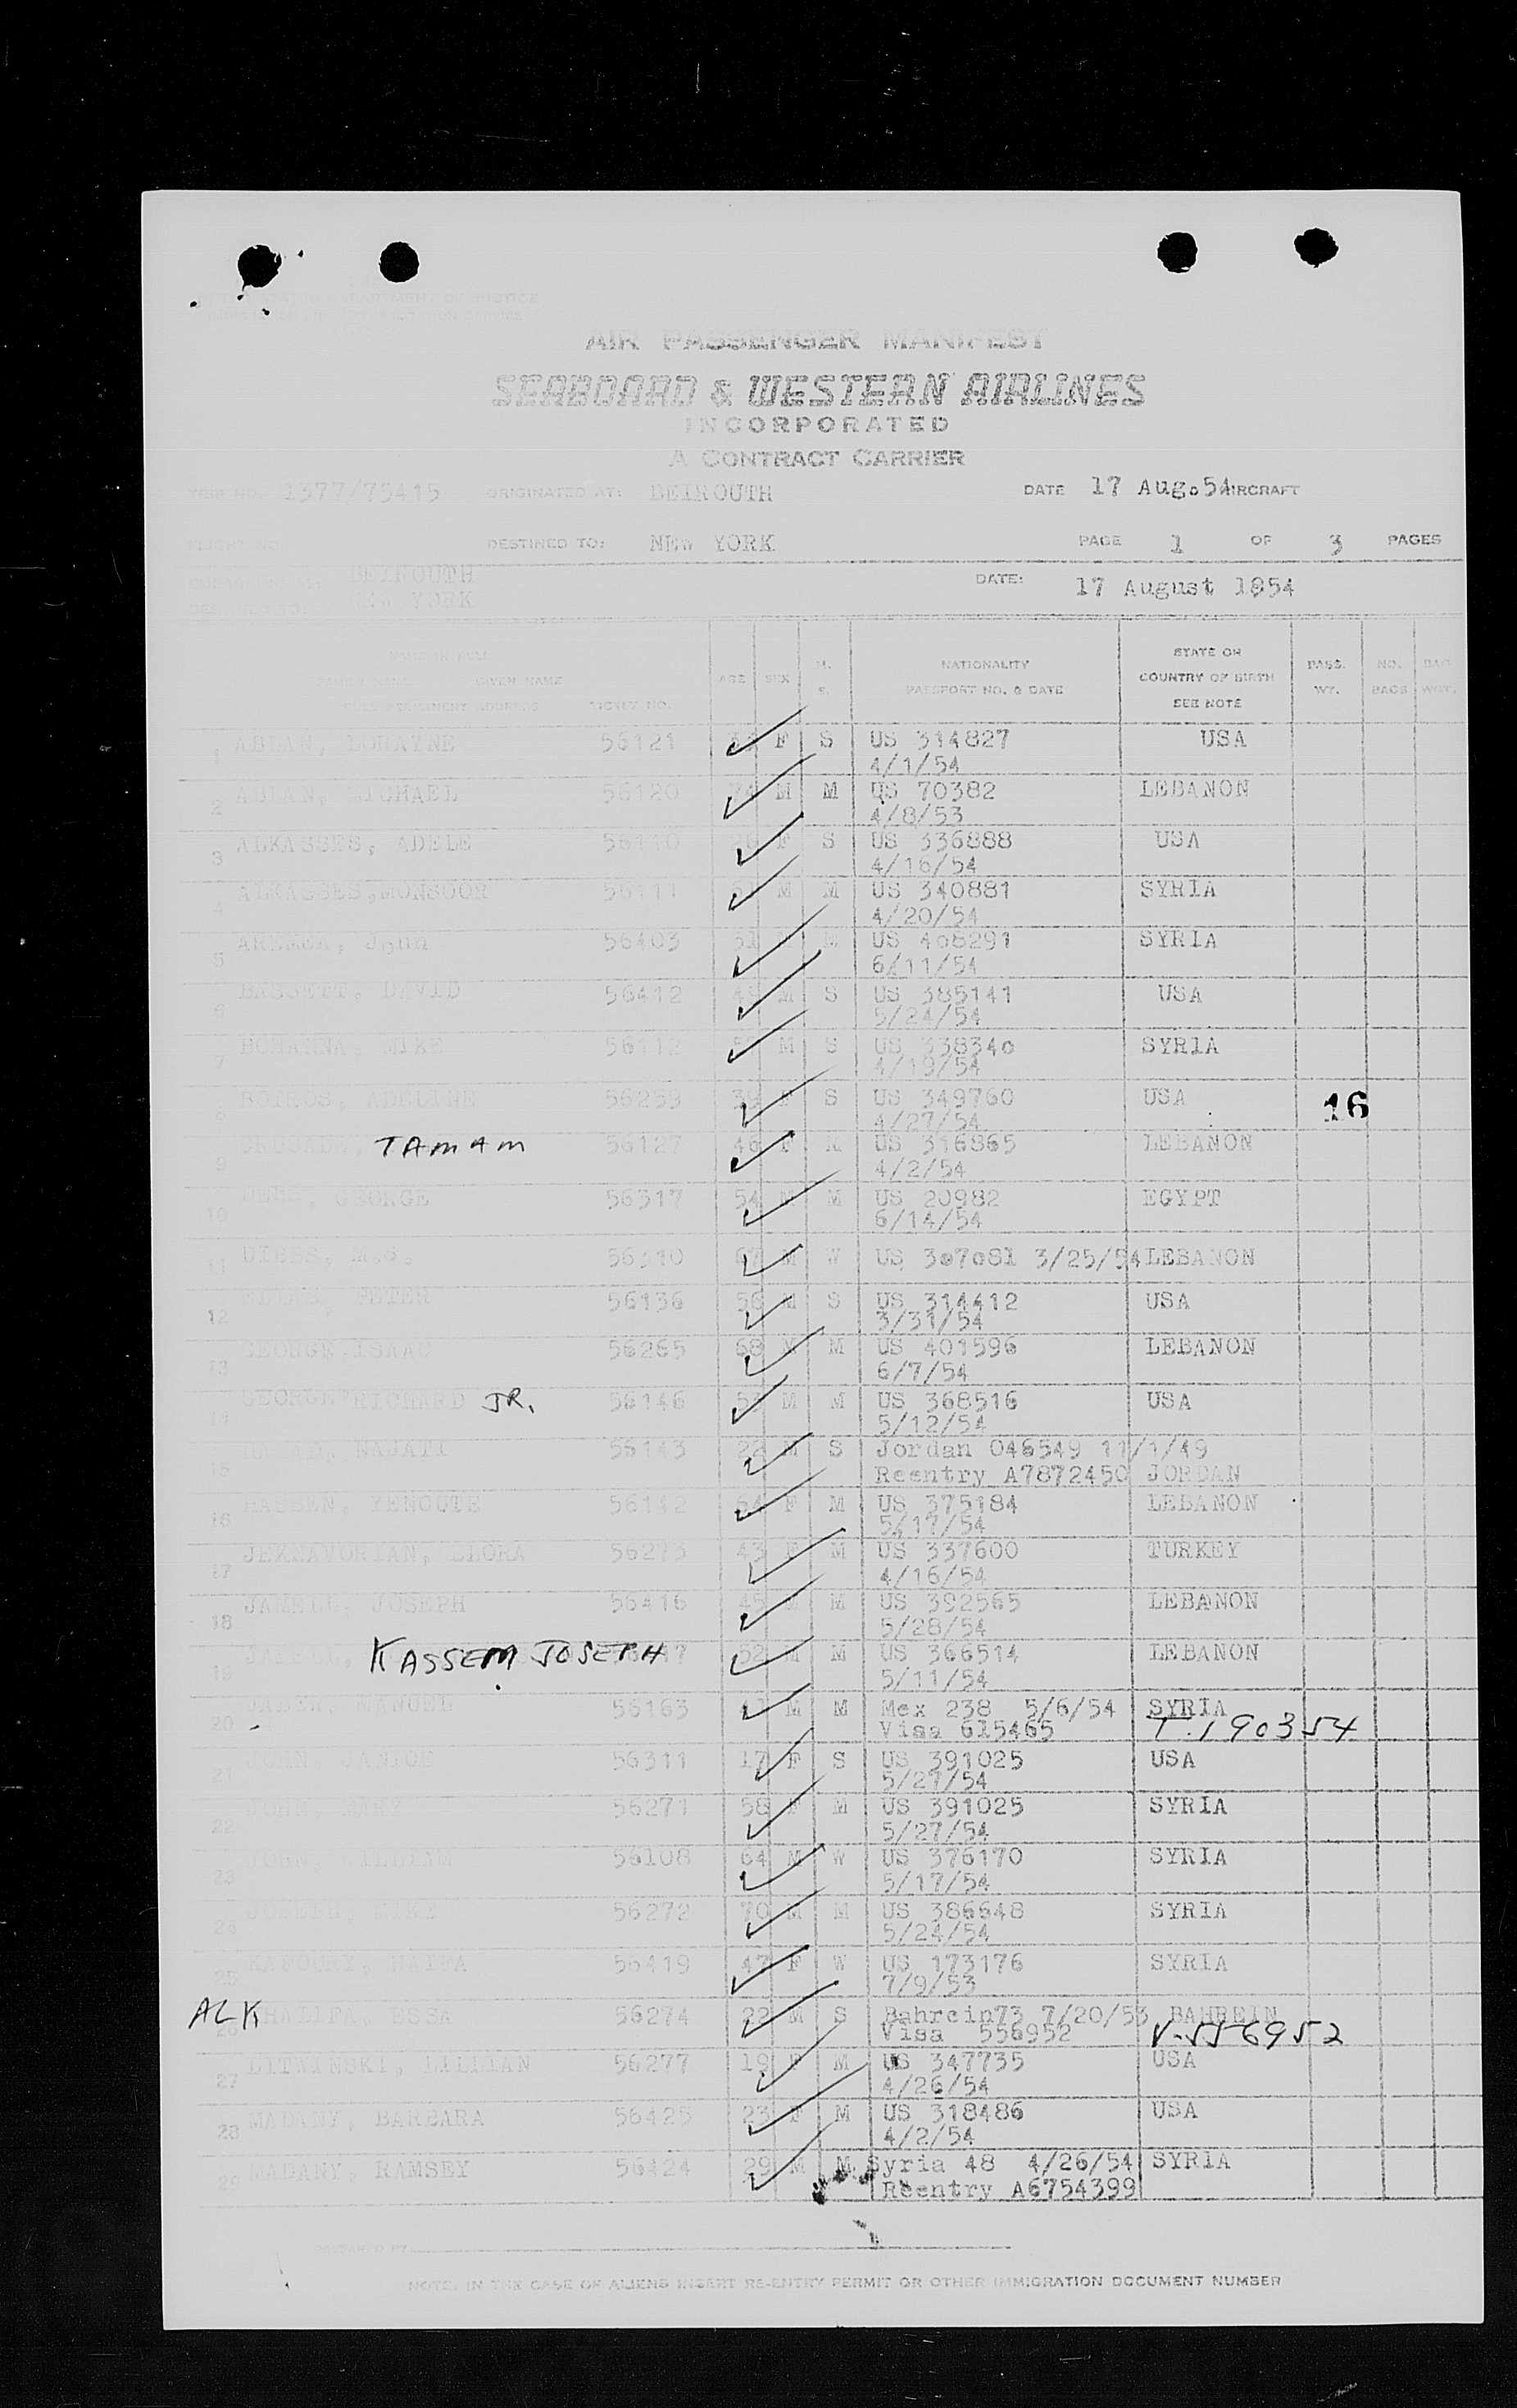 AIR PASSENGER MANIFEST
SEABOARD & WESTERN AIRLINES
INCORPORATED
A CONTRACT CARRIER
TRIP NO. 1377/75415 ORIGINATED AT: BEIROUTH DATE 17 Aug.54 AIRCRAFT
FLIGHT NO. DESTINED TO: NEW YORK PAGE 1 OF 3 PAGES
BEIROUTH
NEW YORK DATE: 17 August 1954
GIVEN NAME AGE SEX M. S. NATIONALITY PASSPORT NO. & DATE STATE OR COUNTRY OF BIRTH SEE NOTE PASS. WT. NO. BAGS BAG
FULL PERMANENT ADDRESS TICKET NO.
1 LORAYNE 56121 F S US 314827 USA
4/1/54
2 MICHAEL 56120 74 M M US 70382 LEBANON
4/8/53
3 ALKASSES, ADELE 56110 F S US 336888 USA
4/16/54
4 ALKASSES, MONSOOR 56111 M M US 340881 SYRIA
4/20/54
5 John 56403 51 M US 408291 SYRIA
6/11/54
6 BASSETT, DAVID 56412 M S US 385141 USA
5/24/54
7 BOHANNA, MIKE 56112 M S US 338340 SYRIA
4/19/54
8 BOTROS, ADELINE 56259 39 F S US 349760 USA
4/27/54
16
9 TAMAM 56127 46 F M US 316865 LEBANON
4/2/54
10 GEORGE 56317 54 M M US 20982 EGYPT
6/14/54
11 DIBBS, M.G. 56310 M W US 307081 3/25/54 LEBANON
12 PETER 56136 56 M S US 314412 USA
3/31/54
13 GEORGE, ISAAC 56265 68 M M US 401596 LEBANON
6/7/54
14 GEORGE RICHARD JR. 56146 53 M M US 368516 USA
5/12/54
15 NAJATI 56143 22 M S Jordan 046549 11/1/49
Reentry A7872450 JORDAN
16 56142 F M US 375184 LEBANON
5/17/54
17 56273 43 F M US 337600 TURKEY
4/16/54
18 JAMELL, JOSEPH 56416 45 M US 392565 LEBANON
5/28/54
19 KASSEM JOSEPH 52 M M US 366514 LEBANON
5/11/54
20 MANUEL 56163 M M Mex 238 5/6/54 SYRIA
Visa 615465 T.190354
21 JANICE 56311 17 F S US 391025 USA
5/27/54
22 MARY 56271 58 F M US 391025 SYRIA
5/27/54
23 WILLIAM 56108 64 M W US 376170 SYRIA
5/17/54
24 MIKE 56272 70 M M US 386648 SYRIA
5/24/54
25 HAIFA 56419 47 F W US 173176 SYRIA
7/9/53
ALK
26 KHALIFA, ESSA 56274 22 M S Bahrein73 7/20/53 BAHREIN
Visa 556952 V-556952
27 LITWINSKI, LILLIAN 56277 19 F M US 347735 USA
4/26/54
28 MADANY, BARBARA 56425 23 F M US 318486 USA
4/2/54
29 MADANY, RAMSEY 56424 29 M M Syria 48 4/26/54 SYRIA
Reentry A6754399
PREPARED BY
NOTE: IN THE CASE OF ALIENS INSERT RE-ENTRY PERMIT OR OTHER IMMIGRATION DOCUMENT NUMBER